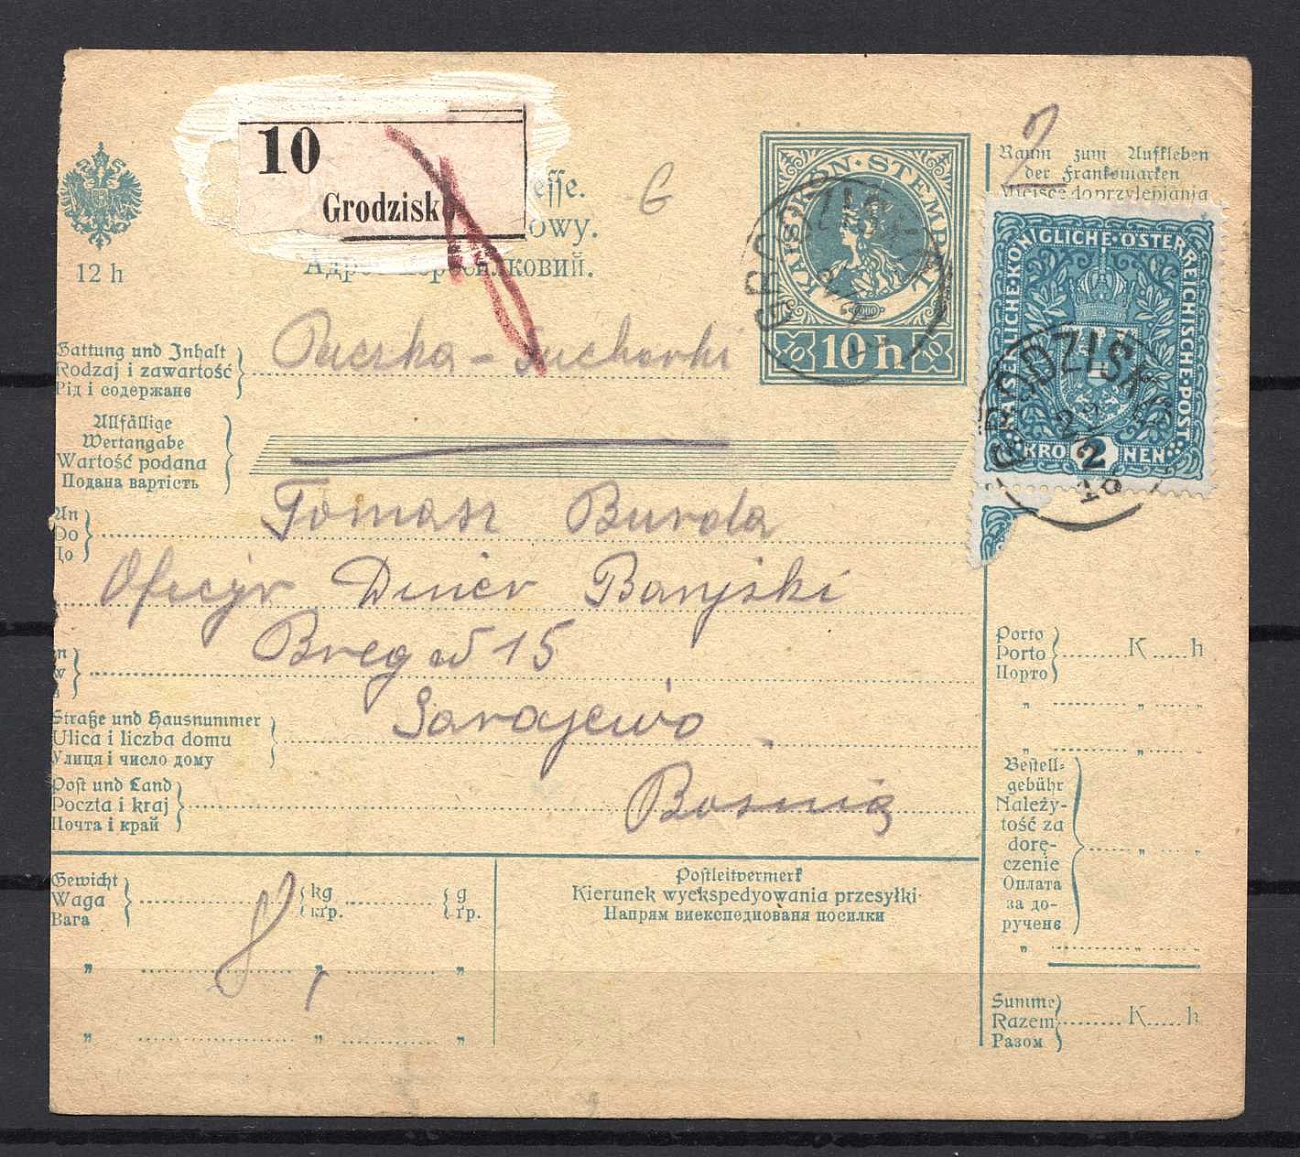 10
Grodzisk
esse.
owy.
Адре
лковий.
12 h
G
2
KAIS·KÖN·STEMPEL
10 h
GRODZISK
Raum zum Aufkleben
der Frankomarken
Miejsce do przylepiania
KAISERLICHE·KÖNIGLICHE·ÖSTERREICHISCHE·POST
KRO 2 NEN
GRODZISK
22
18
Gattung und Inhalt
Rodzaj i zawartość
Рід і содержанє
Paczka - Sucharki
Allfällige
Wertangabe
Wartość podana
Подана вартість
An
Do
До
Tomasz Burda
Oficyr Diner Banjski
Breg N 15
n
w
Sarajewo
Straße und Hausnummer
Ulica i liczba domu
Улиця і число дому
Post und Land
Poczta i kraj
Почта і край
Bosnia
Porto
Porto
Порто
K h
" "
" "
Bestell-
gebühr
Należy-
tość za
dorę-
czenie
Оплата
за до-
ручене
" "
" "
Summe
Razem
Разом
K h
Gewicht
Waga
Вага
kg
кґр.
g
ґр.
8,
" " "
" " "
Postleitvermerk
Kierunek wyekspedyowania przesyłki
Напрям виекспедиованя посилки